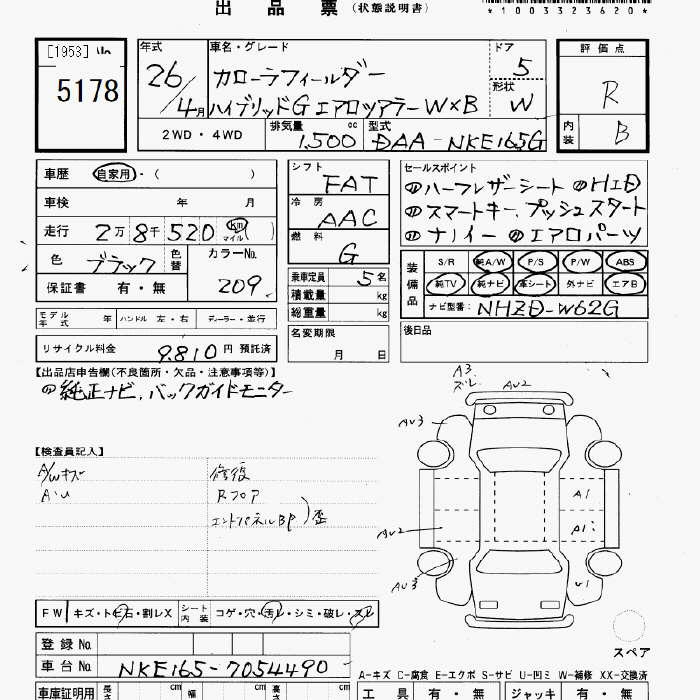 出品票 (状態説明書)
*1003323620*
[1953]
5178
年式 車名・グレード ドア 評価点
26/4月 カローラフィールダー 5 R
ハイブリッドG エアロツアラーW×B 形状 W
2WD・4WD 排気量 1,500 cc 型式 DAA-NKE165G 内装 B
車歴 自家用・( )
車検 年 月
走行 2万8千520 km マイル ( )
色 ブラック 色替 カラーNo. 209
保証書 有・無
シフト FAT
冷房 AAC
燃料 G
乗車定員 5名
積載量 kg
総重量 kg
名変期限 月 日
セールスポイント
ハーフレザーシート HID
スマートキー、プッシュスタート
ナノイー エアロパーツ
装備品 S/R 純A/W P/S P/W ABS
純TV 純ナビ 革シート 外ナビ エアB
ナビ型番: NHZD-W62G
後日品
モデル年式 年 ハンドル 左・右 ディーラー・並行
リサイクル料金 9,810 円 預託済
【出品店申告欄(不良箇所・欠品・注意事項等)】
純正ナビ、バックガイドモニター
【検査員記入】
A/Wキズ 修復
A・U Rフロア
エンドパネルBP 歪
A3 ズレ AU2
AU3
A1
AU2 A1
AU3 U1
スペア
FW キズ・トビ石・割レX シート内装 コゲ・穴・汚レ・シミ・破レ・スレ
登録No.
車台No. NKE165-7054490
A-キズ C-腐食 E-エクボ S-サビ U-凹ミ W-補修 XX-交換済
車庫証明用 長さ cm 幅 cm 高さ cm 工具 有・無 ジャッキ 有・無